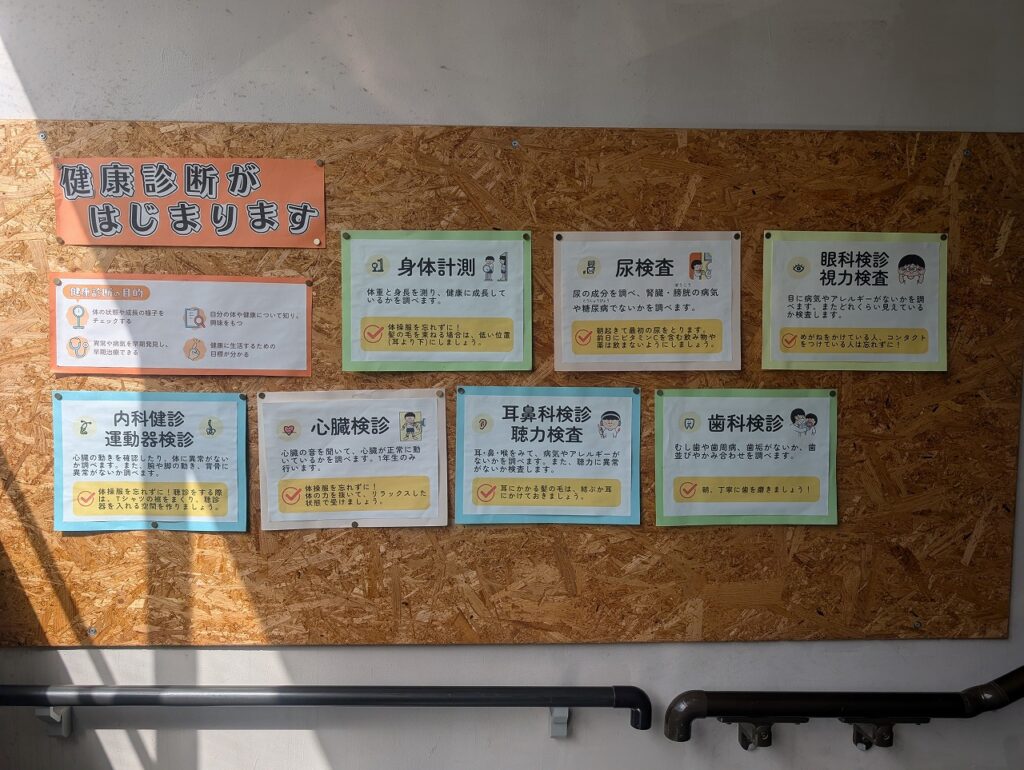 健康診断が
はじまります
健康診断の目的
体の状態や成長の様子を
チェックする
自分の体や健康について知り、
興味をもつ
異常や病気を早期発見し、
早期治療できる
健康に生活するための
目標が分かる
身体計測
体重と身長を測り、健康に成長して
いるかを調べます。
体操服を忘れずに！
髪の毛を束ねる場合は、低い位置
(耳より下)にしましょう。
尿検査
尿の成分を調べ、腎臓・膀胱の病気
や糖尿病でないかを調べます。
朝起きて最初の尿をとります。
前日にビタミンCを含む飲み物や
薬は飲まないようにしましょう。
眼科検診
視力検査
目に病気やアレルギーがないかを調
べます。またどれくらい見えている
か検査します。
めがねをかけている人、コンタクト
をつけている人は忘れずに！
内科健診
運動器検診
心臓の動きを確認したり、体に異常がない
か調べます。また、腕や脚の動き、背骨に
異常がないか調べます。
体操服を忘れずに！聴診をする際
は、Tシャツの裾をまくり、聴診
器を入れる空間を作りましょう。
心臓検診
心臓の音を聞いて、心臓が正常に動
いているかを調べます。1年生のみ
行います。
体操服を忘れずに！
体の力を抜いて、リラックスした
状態で受けましょう。
耳鼻科検診
聴力検査
耳・鼻・喉をみて、病気やアレルギーが
ないかを調べます。また、聴力に異常
がないか検査します。
耳にかかる髪の毛は、結ぶか耳
にかけておきましょう。
歯科検診
むし歯や歯周病、歯垢がないか、歯
並びやかみ合わせを調べます。
朝、丁寧に歯を磨きましょう！